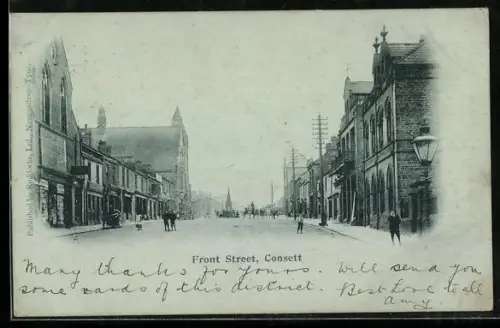 Front Street, Consett
Many thanks for yours. Will send you
some cards of this district. Best Love to all
Amy.
Published by R. Ltd., N.